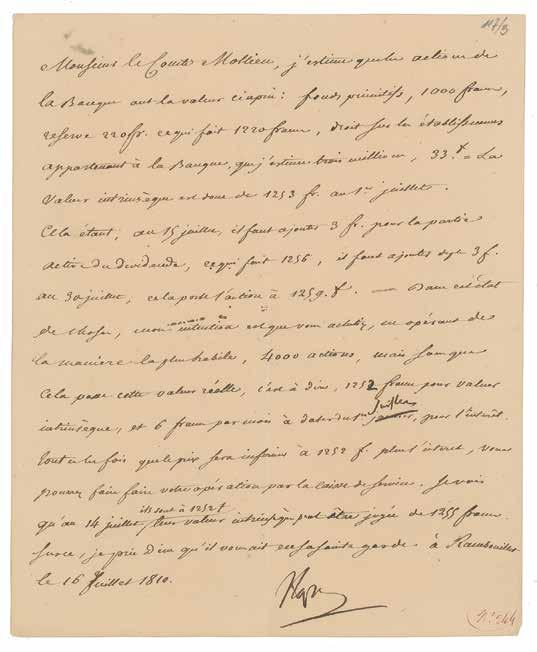 117/3
Monsieur le Comte Mollien, j'estime que les actions de
la Banque ont la valeur ci après : fonds primitifs, 1000 francs,
reserve 220 fr. ce qui fait 1220 francs, droit sur les établissemens
appartenant à la Banque, que j'estime trois millions, 33. f = La
valeur intrinsèque est donc de 1253 fr. au 1er juillet.
Cela étant, au 15 juillet, il faut ajouter 3 fr. pour la partie
active du dividende, ce qui fait 1256, il faut ajouter 3 f.
au 30 juillet, ce la porte l'action à 1259. f. — Dans cet état
de choses, mon intention est que vous achetiez, en opérant de
la manière la plus habile, 4000 actions, mais sans que
cela passe cette valeur réelle, c'est à dire, 1252 francs pour valeur
intrinsèque, et 6 francs par mois à dater du 1er juillet, pour l'intérêt.
Toutes les fois que le prix sera inférieur à 1252 f. plus l'interet, vous
pouvez faire faire votre opération par la caisse de service. Je vois
ils sont à 1252 f
qu'au 14 juillet leur valeur intrinsèque peut être jugée de 1255 francs.
Sur ce, je prie Dieu qu'il vous ait en sa sainte garde. à Rambouillet
le 16 Juillet 1810.
Nap
N° 244